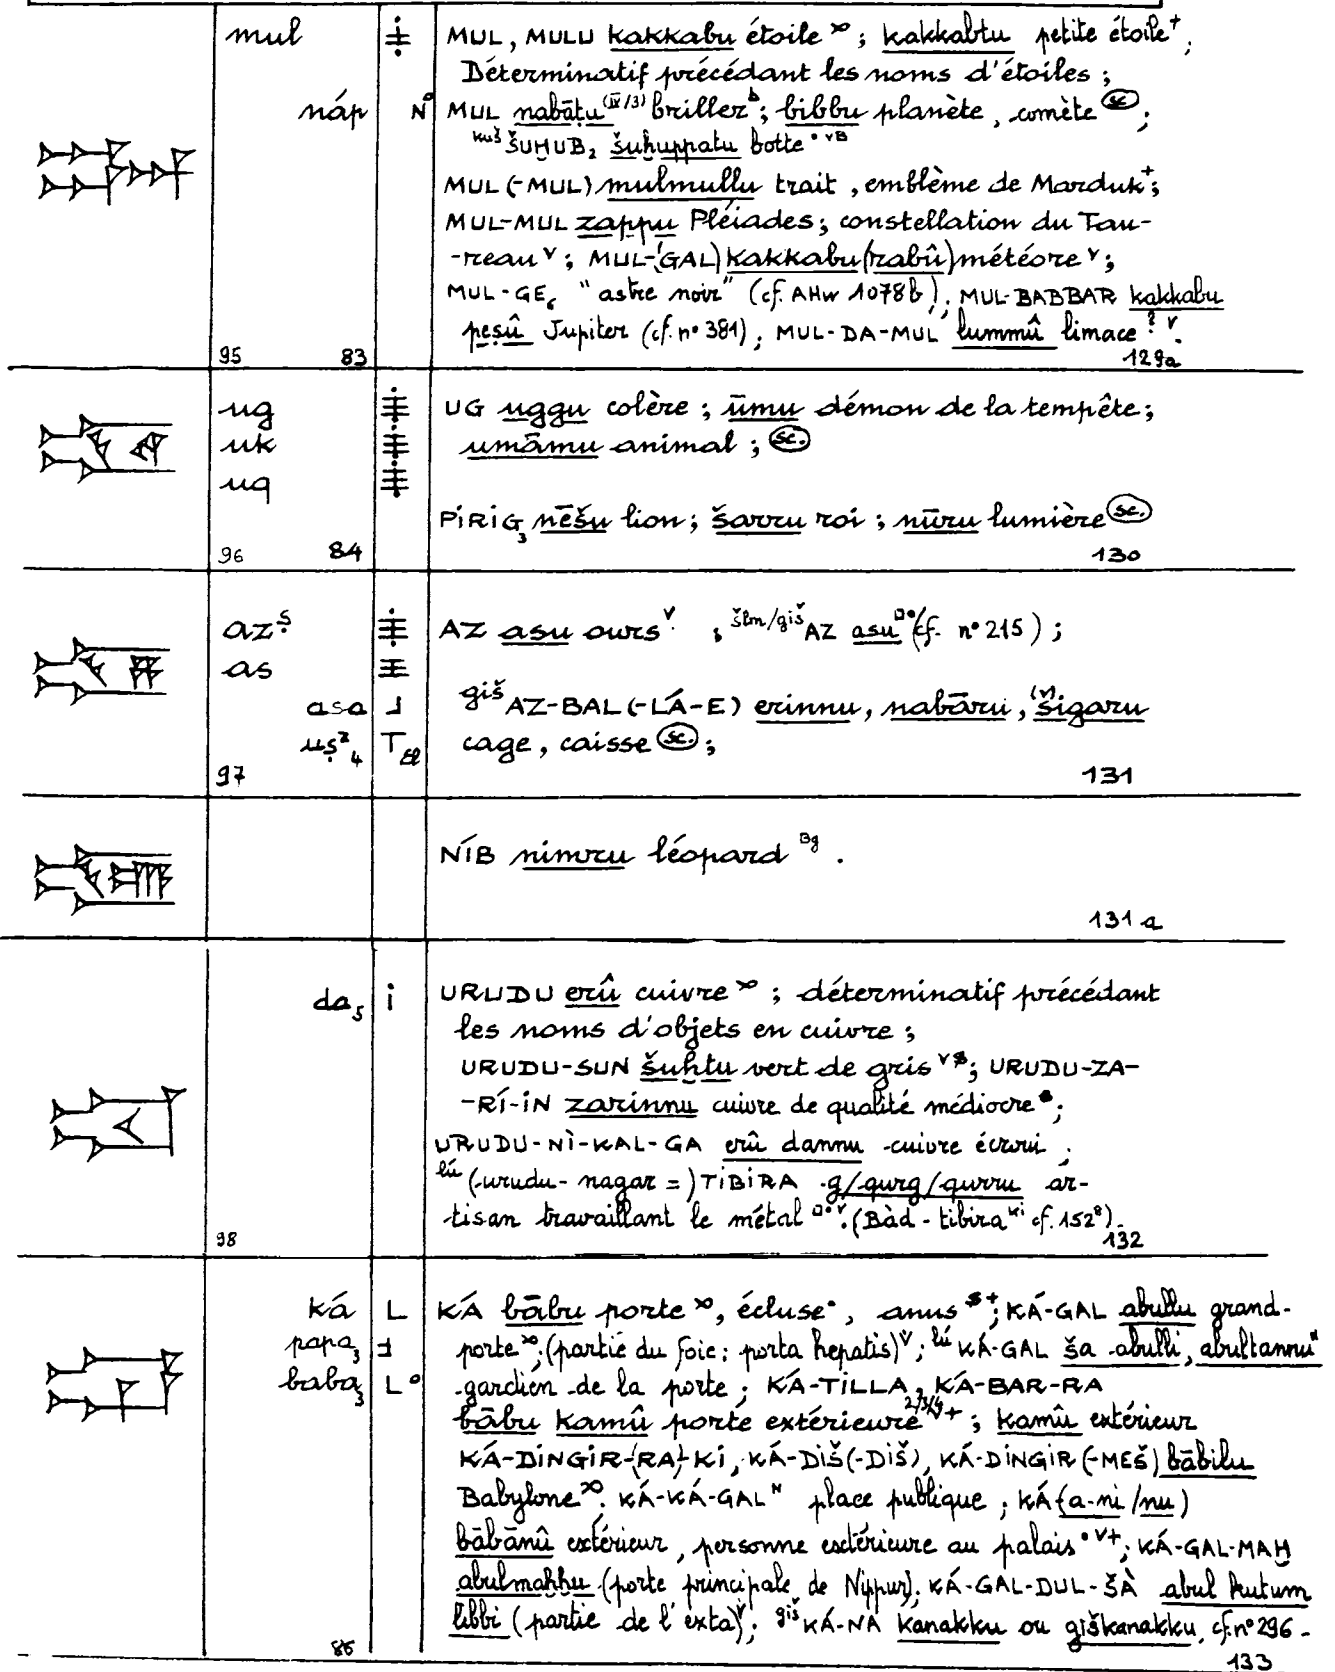 mul MUL, MULU kakkabu étoile ; kakkabtu petite étoile⁺,
Déterminatif précédant les noms d'étoiles ;
náp N° MUL nabāṭu (IV/3) briller ᵇ; bibbu planète, comète (sc) ;
kuš ŠUḪUB₂ šuḫuppatu botte • vB
MUL (-MUL) mulmullu trait, emblème de Marduk⁺;
MUL-MUL zappu Pléiades; constellation du Tau-
-reau ᵛ; MUL-(GAL) kakkabu (rabû) météore ᵛ;
MUL-GE₆ "astre noir" (cf. AHw 1078b), MUL-BABBAR kakkabu
peṣû Jupiter (cf. n° 381); MUL-DA-MUL lummû limace ? v.
95 83 129a
ug UG uggu colère ; ūmu démon de la tempête;
uk umāmu animal ; (sc.)
uq
PIRIG₃ nēšu lion ; šarru roi ; nūru lumière (sc.)
96 84 130
az ṣ AZ asu ours ᵛ ; šim/giš AZ asu (cf. n° 215) ;
as
asa giš AZ-BAL (-LÁ-E) erinnu, nabāru, (v) šigaru
uṣ₄ z T El cage, caisse (sc.) ;
97 131
NÍB nimru léopard Bg .
131 a
da₅ i URUDU erû cuivre ; déterminatif précédant
les noms d'objets en cuivre ;
URUDU-SUN šuḫtu vert de gris ; URUDU-ZA-
-RÍ-IN zarinnu cuivre de qualité médiocre ;
URUDU-NÌ-KAL-GA erû dannu cuivre écroui ;
lú (urudu-nagar =) TIBIRA g/qurg/qurru ar-
tisan travaillant le métal . (Bàd-tibira ki cf. 152⁸).
98 132
ká L KÁ bābu porte, écluse•, anus ; KÁ-GAL abullu grand-
papa₃ porte ; (partie du foie : porta hepatis) ᵛ; lú KÁ-GAL ša abulli, abultannu
baba₃ L° gardien de la porte ; KÁ-TILLA, KÁ-BAR-RA
bābu kamû porte extérieure ; kamû extérieur
KÁ-DINGIR-(RA)-KI, KÁ-DIŠ (-DIŠ), KÁ-DINGIR (-MEŠ) bābilu
Babylone . KÁ-KÁ-GAL ᴺ place publique ; KÁ (a-ni/nu)
bābānû extérieur, personne extérieure au palais • v+; KÁ-GAL-MAḪ
abulmaḫḫu (porte principale de Nippur); KÁ-GAL-DUL-ŠÀ abul kutum
libbi (partie de l'exta) ᵛ; giš KÁ-NA kanakku ou giškanakku, cf. n° 296 -
85 133